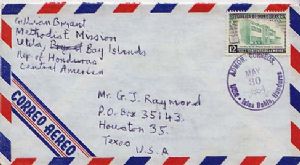 Gillian Bryant
Methodist Mission
Utila, Bay Islands
Rep of Honduras
Central America
CORREO AEREO
12
MAY
30
Islas Bahia, Honduras
Mr. G. J. Raymond
P.O. Box 35143.
Houston 35.
Texas
U.S.A